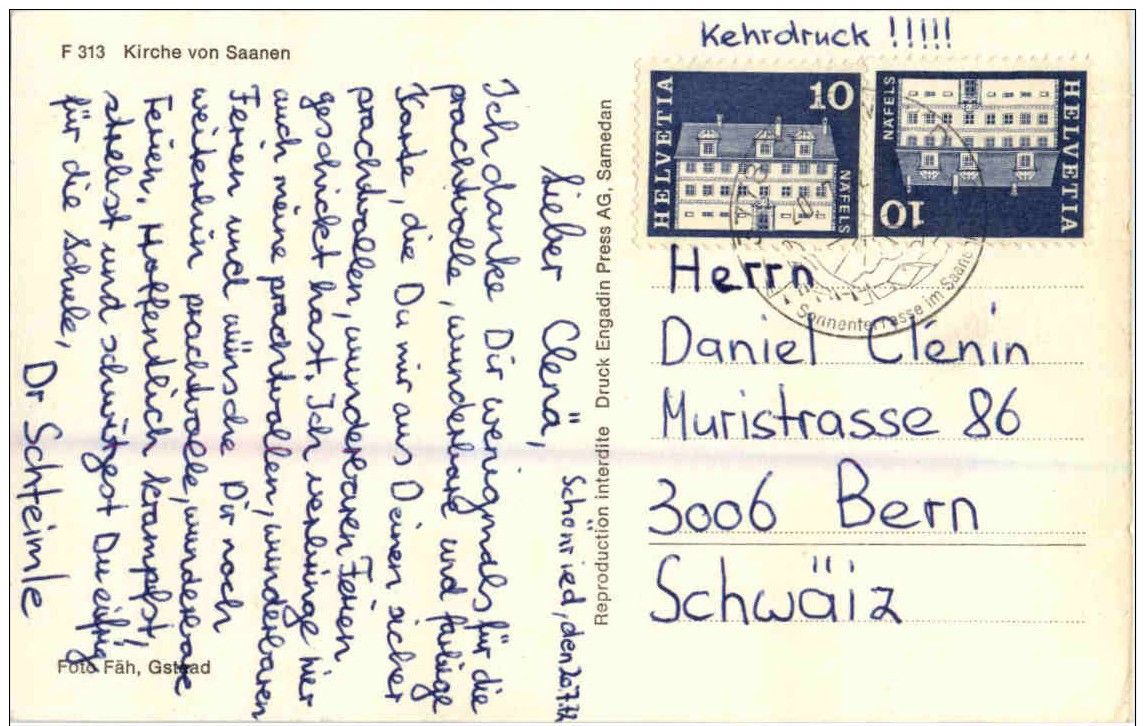 F 313 Kirche von Saanen
Kehrdruck !!!!!
HELVETIA
10
NÄFELS
HELVETIA
10
NÄFELS
Sonnenterrasse im Saanen
Herrn
Daniel Clénin
Muristrasse 86
3006 Bern
Schwäiz
Reproduction interdite Druck Engadin Press AG, Samedan
Schönried, den 20.7.
Lieber Clenä,
Ich danke Dir wenigmals für die
prachtvolle, wunderbare und
Karte, die Du mir aus Deinen sicher
prachtvollen, wunderbaren Ferien
geschickt hast. Ich verbringe hier
auch meine prachtvollen, wunderbaren
Ferien und wünsche Dir noch
weiterhin prachtvolle, wunderbare
Ferien. Hoffentlich krampfst,
strebst und schwitzest Du eifrig
für die Schule,
Dr. Schteimle
Foto Fäh, Gstaad